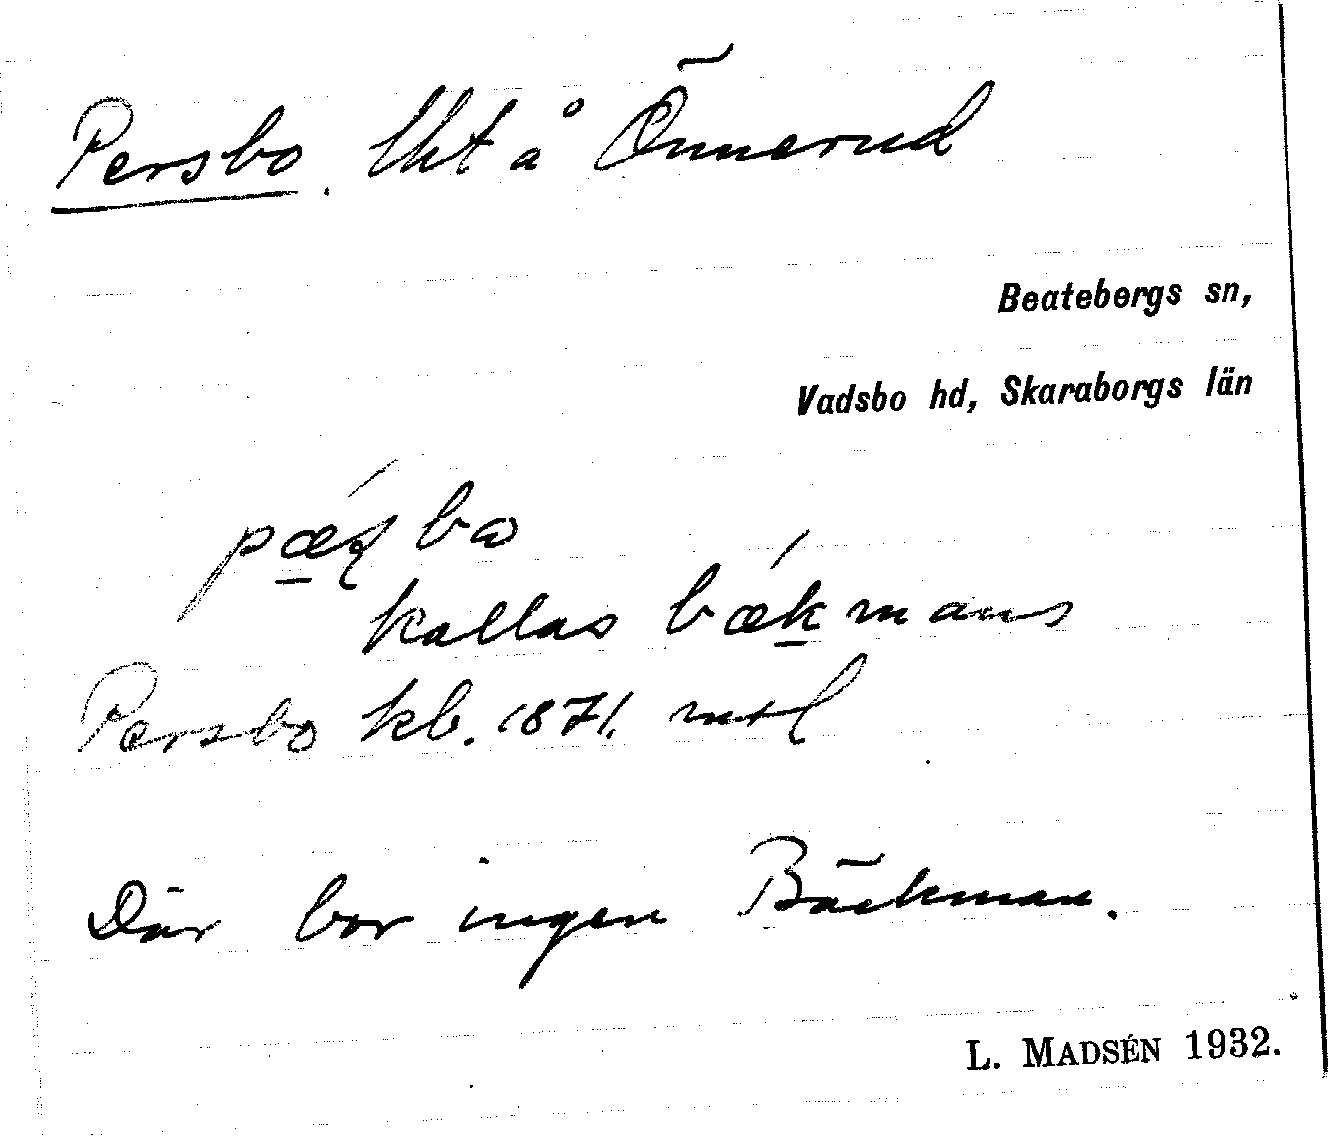 Persbo. lht å Önnerud
Beatebergs sn,
Vadsbo hd, Skaraborgs län
bω
kallas bǽkmans
Persbo kb. 1871. mtl
Där bor ingen Bäckman.
L. MADSÉN 1932.